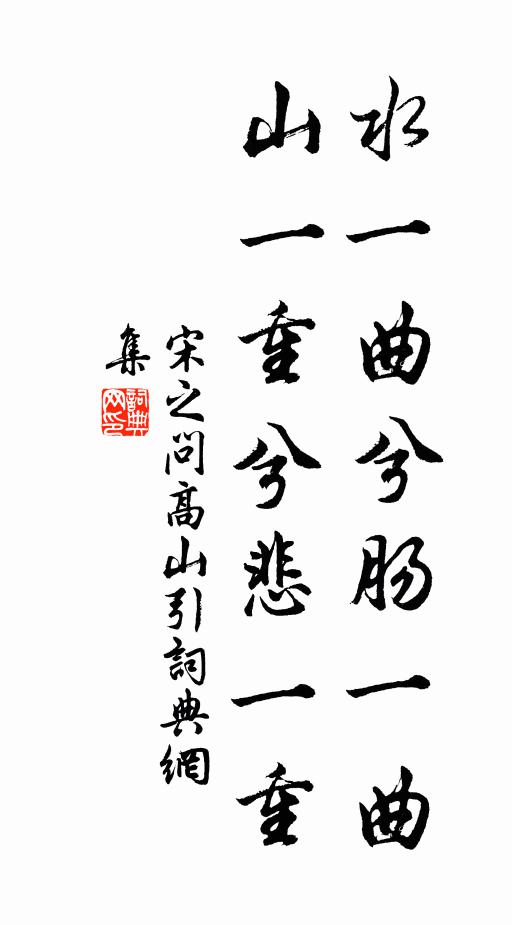 水一曲兮肠一曲
山一重兮悲一重
宋之问高山引詞典網
集
詞典网印